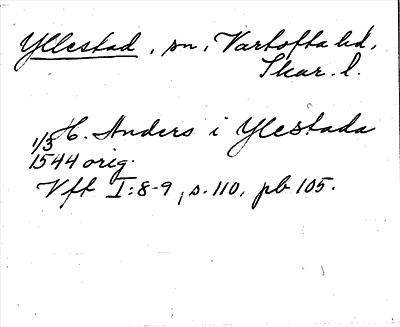 Yllestad, sn, Vartofta hd,
Skar. l.
1/3 H. Anders i Ylestada
1544 orig.
Vft I:8-9, s. 110, pb 105.